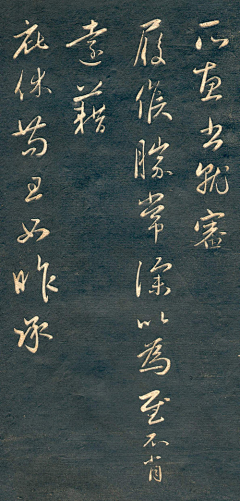 所惠書就審
履候勝常深以為慰不肖
遠藉
庇休苟且如昨承